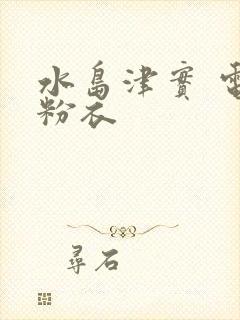 水島津實 電
粉衣
尋石